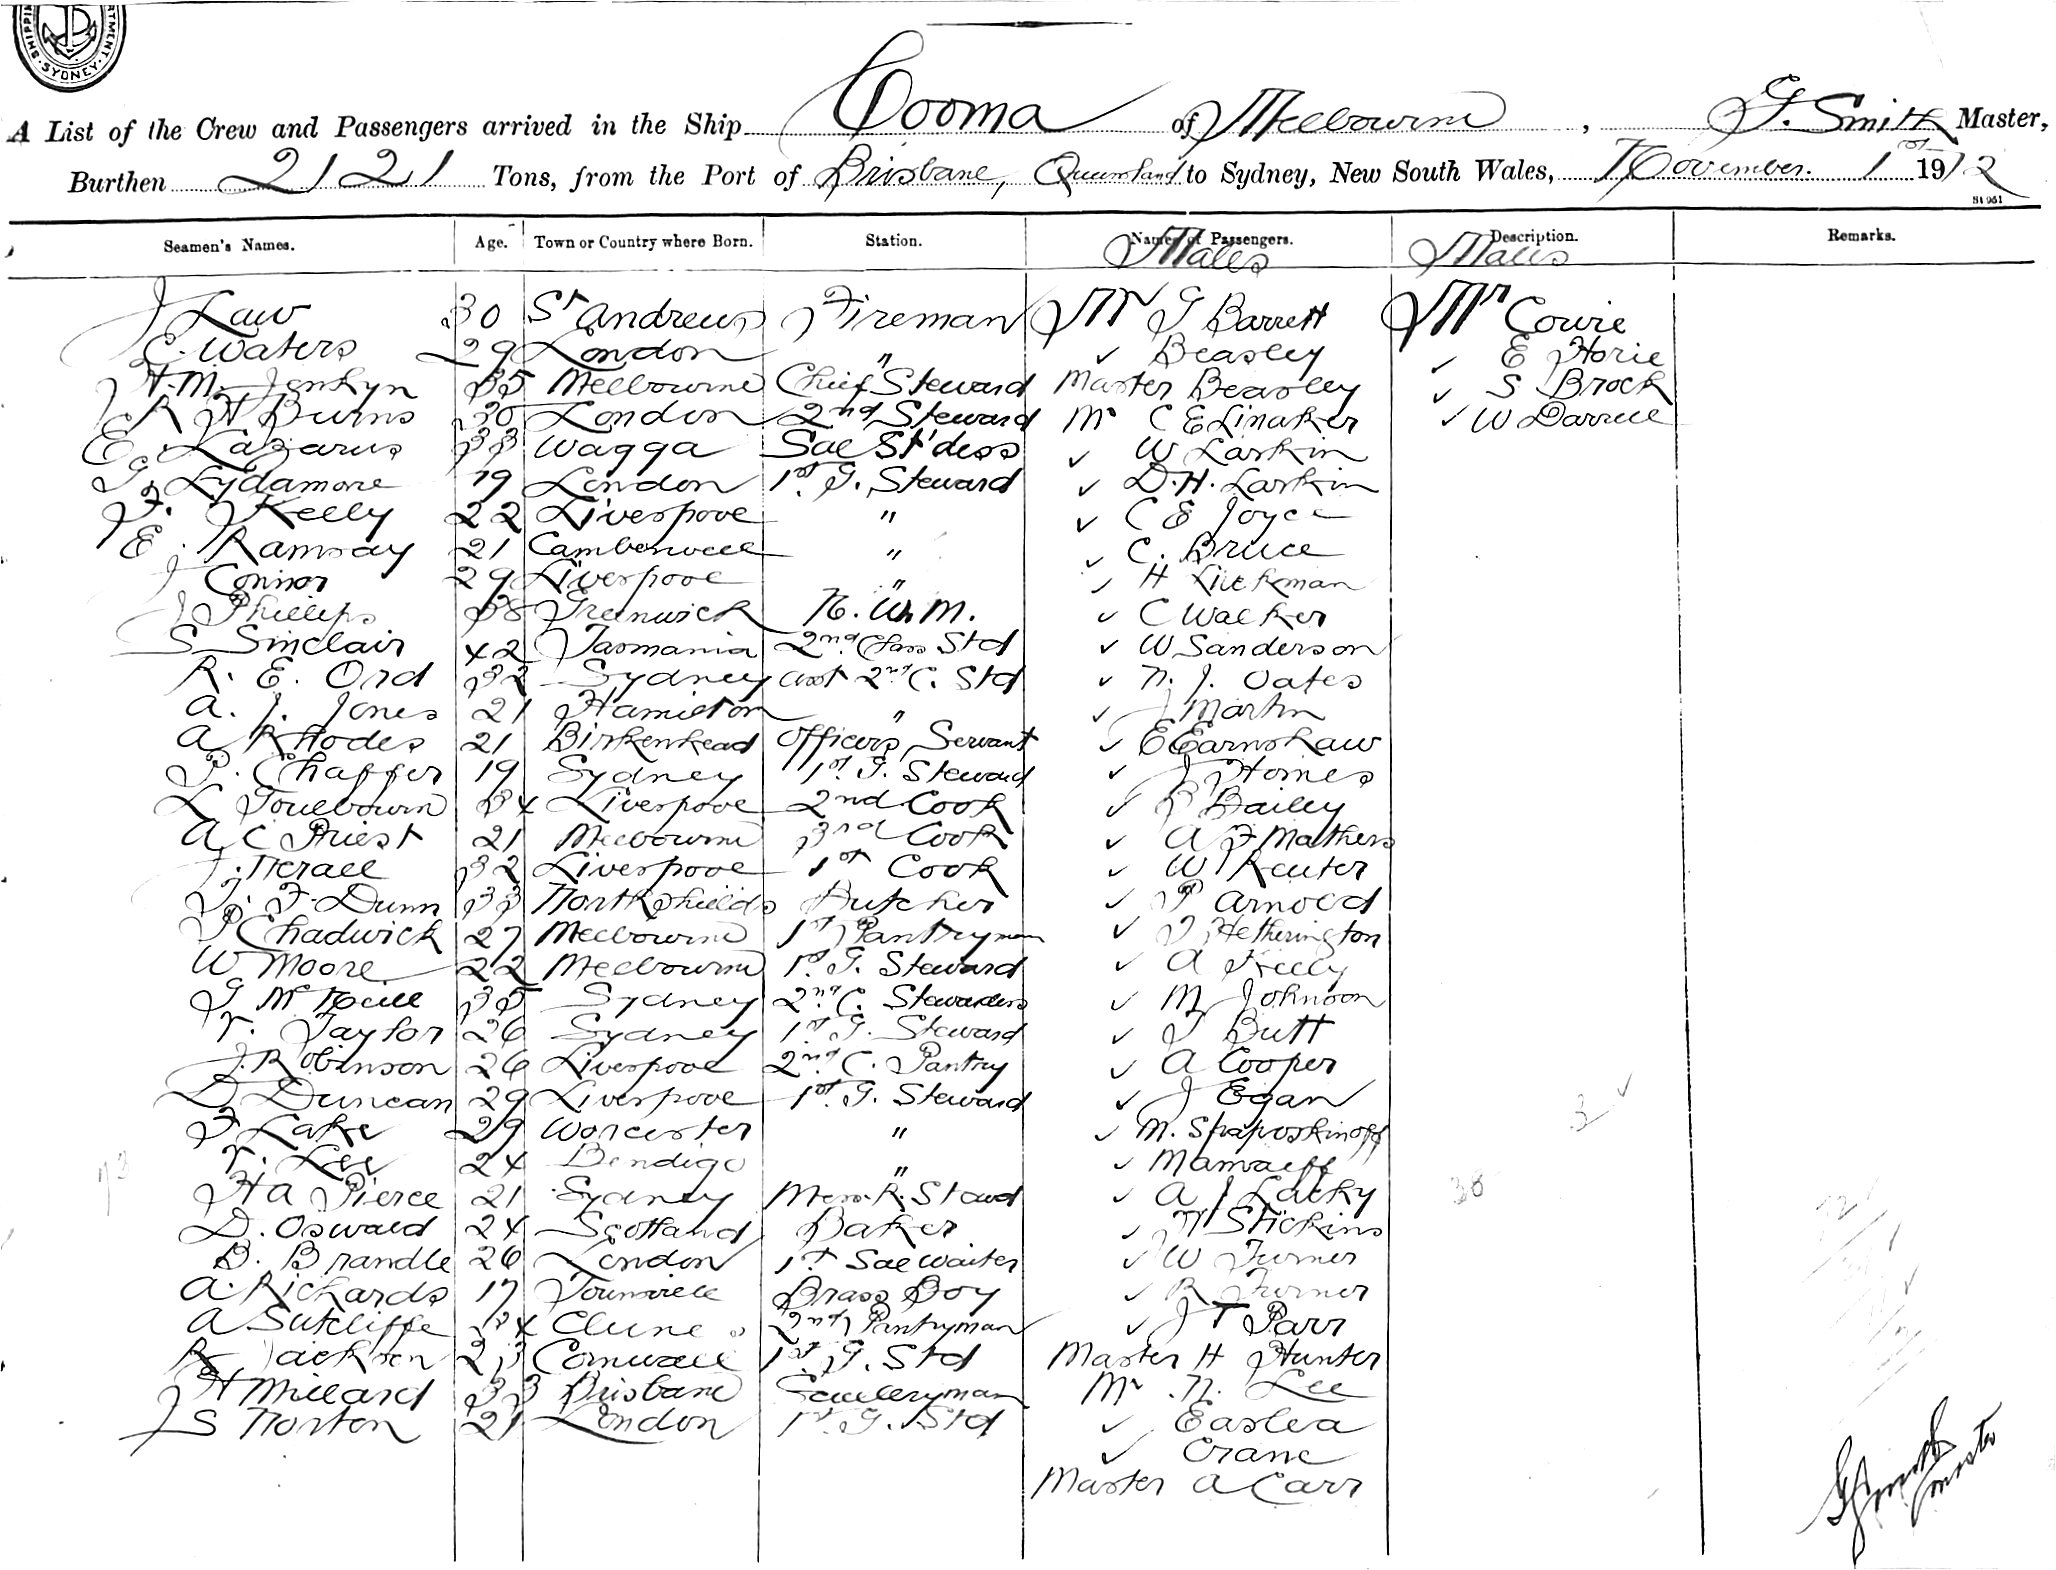 SHIPPING DEPARTMENT. SYDNEY.
A List of the Crew and Passengers arrived in the Ship Cooma of Melbourne, G. Smith Master,
Burthen 2121 Tons, from the Port of Brisbane, Queensland to Sydney, New South Wales, November 1st 1912
St 951
Seamen's Names. Age. Town or Country where Born. Station. Names of Passengers. Description. Remarks.
Males Males
J Law 30 St Andrews Fireman Mr G Barrett Mr Cowie
C. Waters 29 London " ✓ Beasley ✓ E Horie
H. M. Jenkyn 35 Melbourne Chief Steward Master Beasley ✓ S Brock
R H Burns 30 London 2nd Steward Mr C E Linaker ✓ W Darrell
E Lazarus 33 Wagga Sal St'dess ✓ W Larkin
G. Lydamore 19 London 1st. G. Steward ✓ D. H. Larkin
F. Kelly 22 Liverpool " ✓ C E Joyce
E. Ramsay 21 Camberwell " ✓ C. Bruce
J Connor 29 Liverpool " ✓ H Lickman
J Phillips 38 Greenwich N. W. M. ✓ C Walker
S Sinclair 42 Tasmania 2nd Class Std ✓ W Sanderson
R. E. Ord 32 Sydney asst 2nd C. Std ✓ N. J. Oates
A. J. Jones 21 Hamilton " ✓ J Martin
A Rhodes 21 Birkenhead Officers Servant ✓ E Earnshaw
P. Chaffer 19 Sydney 1st. G. Steward ✓ J Homes
L Goulbourn 34 Liverpool 2nd Cook ✓ P Bailey
A C Priest 21 Melbourne 3rd Cook ✓ A F Mathers
J. Nerall 32 Liverpool 1st Cook ✓ W Reuter
T. F. Dunn 33 North Shields Butcher ✓ P Arnold
P Chadwick 27 Melbourne 1st Pantryman ✓ T Hetherington
W Moore 22 Melbourne 1st. G. Steward ✓ A Kelly
G McNeill 35 Sydney 2nd. C. Stewardess ✓ M Johnson
T. Taylor 26 Sydney 1st. G. Steward ✓ J Butt
J. Robinson 26 Liverpool 2nd C. Pantry ✓ A Cooper
D Duncan 29 Liverpool 1st. G. Steward ✓ J Egan
F Lake 29 Worcester " ✓ M. Shaposkinoff 3 ✓
T. Lee 24 Bendigo " ✓ Mamaeff
H A Pierce 21 Sydney Mess. R. Stawd ✓ A J Lacky 38
D. Oswald 24 Scotland Baker ✓ H Stickins
B. Brandle 26 London 1st Sal Waiter ✓ W Turner
A. Richards 17 Townsville Brass Boy ✓ R Turner
A Sutcliffe 34 Clunes 2nd Pantryman ✓ J T Parr
R Jackson 23 Cornwall 1st. G. Std Master H Hunter
H Millard 33 Brisbane Sculleryman Mr. N. Lee
J S Norton 21 London 1st. G. Std ✓ Easlea
✓ Crane
Master A Carr
G Smith
Master